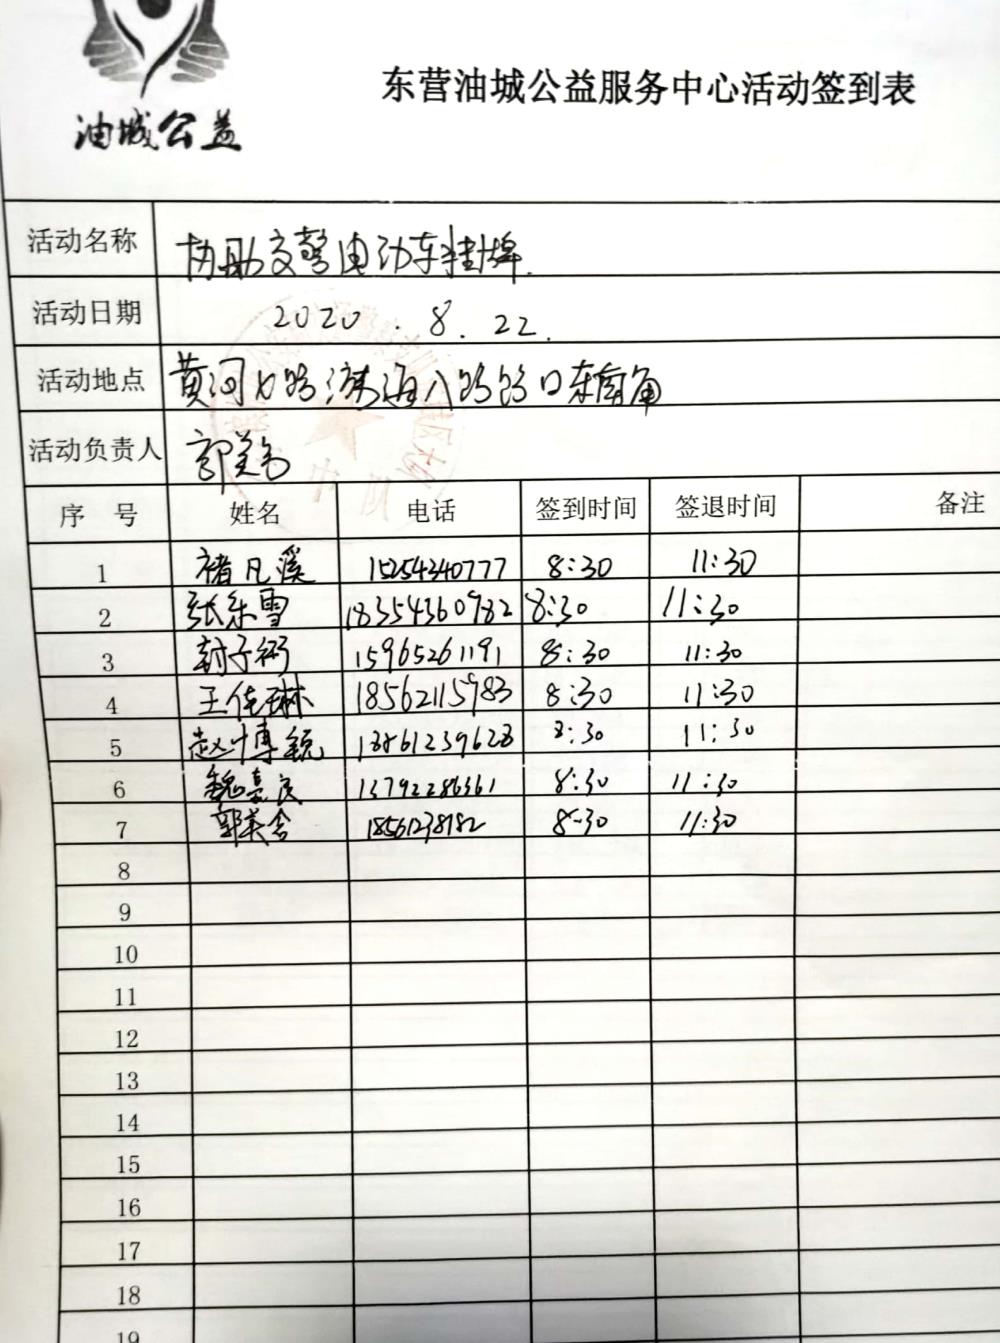 油城公益
东营油城公益服务中心活动签到表
活动名称 协助交警电动车挂牌.
活动日期 2020.8.22.
活动地点 黄河 路 路路口东南角
活动负责人 郭美
序 号 姓名 电话 签到时间 签退时间 备注
1 褚凡溪 15254340777 8:30 11:30
2 张乐雪 18354360982 8:30 11:30
3 封子 15965261191 8:30 11:30
4 王佳琳 18562115983 8:30 11:30
5 赵博毓 8:30 11:30
6 魏嘉 13792286361 8:30 11:30
7 郭美 18561238182 8:30 11:30
8
9
10
11
12
13
14
15
16
17
18
19